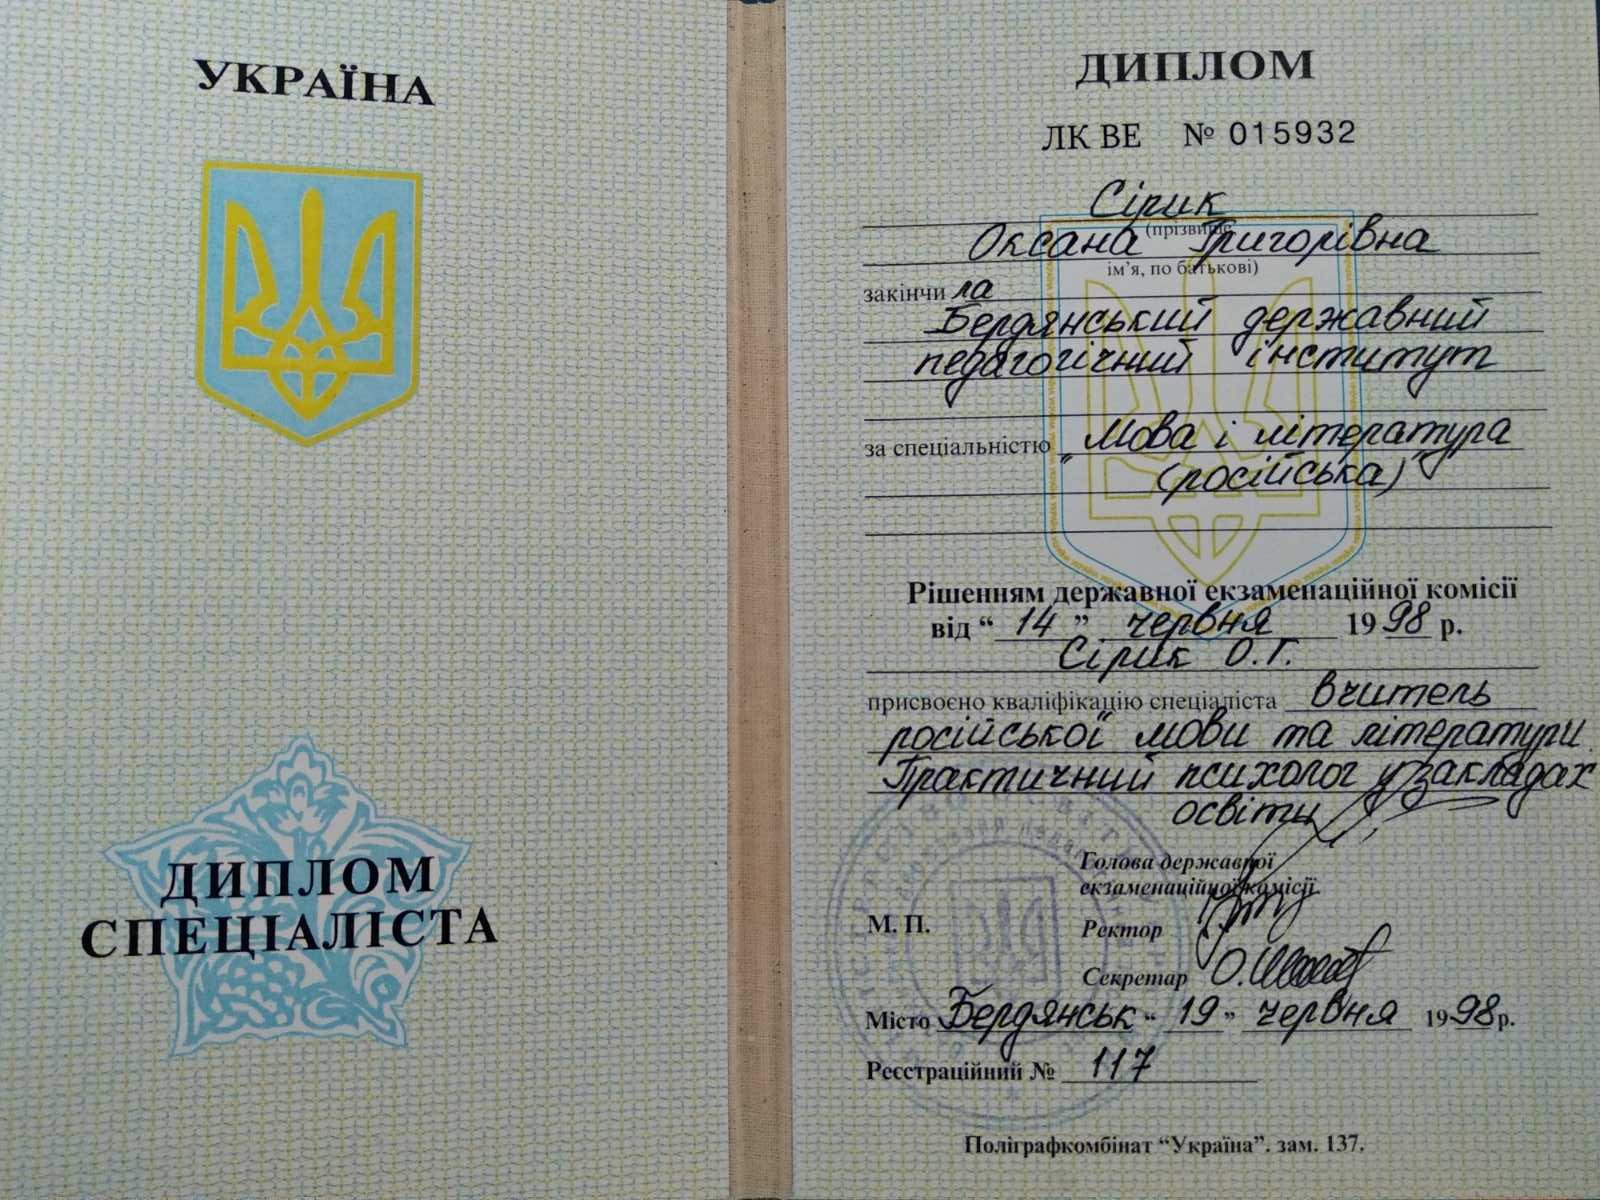 УКРАЇНА
ДИПЛОМ
СПЕЦІАЛІСТА
ДИПЛОМ
ЛК ВЕ № 015932
Сірик
(прізвище,
Оксана Григорівна
ім’я, по батькові)
закінчила
Бердянський державний
педагогічний інститут
за спеціальністю "Мова і література
(російська)"
Рішенням державної екзаменаційної комісії
від “14” червня 1998 р.
Сірик О.Г.
присвоєно кваліфікацію спеціаліста вчитель
російської мови та літератури.
Практичний психолог у закладах
освіти
Голова державної
екзаменаційної комісії
М. П.
Ректор
Секретар
Місто Бердянськ “19” червня 1998р.
Реєстраційний № 117
Поліграфкомбінат “Україна”. зам. 137.